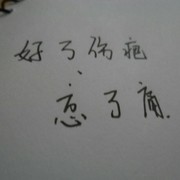 好了伤疤
忘了痛.